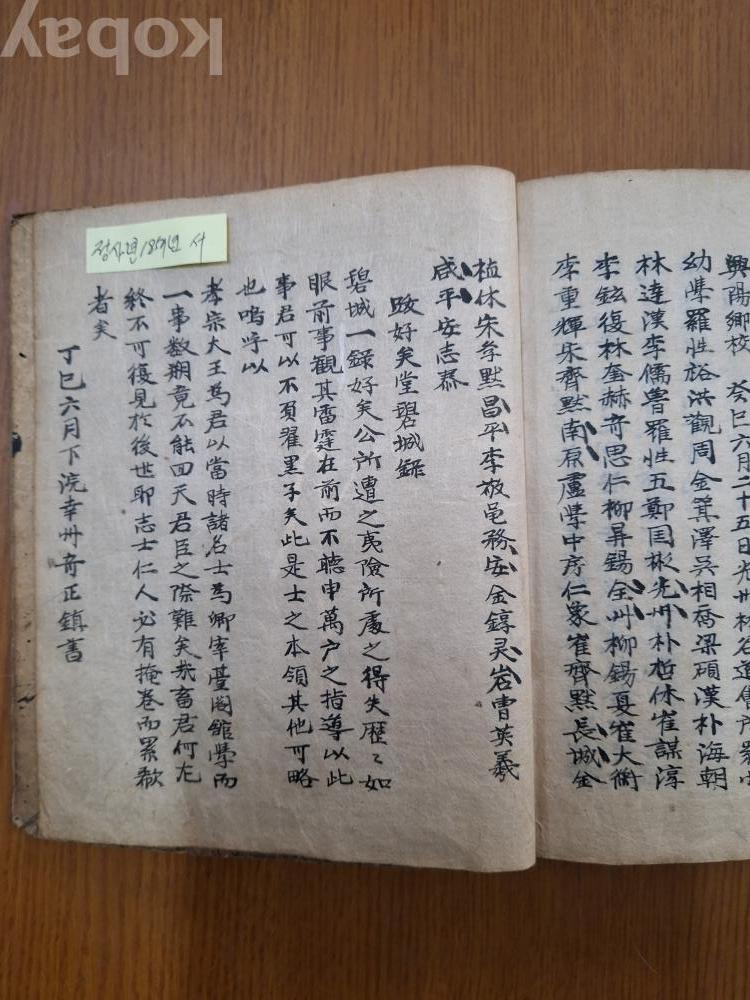 kobay
정사년 1857년 서
興陽鄕校 癸巳六月二十五日光州林名遠
幼學羅性裕洪觀周金箕澤吳相喬梁碩漢朴海朝
林達漢李儒曹羅性五鄭国彬光州朴哲休崔謀淳
李鉉復林奎赫奇思仁柳昇錫全州柳錫夏崔大衡
李重輝朱齊默南原盧學中房仁彖崔齊默長城金
植休朱孝默昌平李敬邑務安金錞灵岩曺英羲
咸平安志泰
跋好矣堂碧城錄
碧城一錄好矣公所遭之夷險所處之得失歷〻如
眼前事觀其雷霆在前而不聽申萬户之指導以此
事君可以不負濯黑子矣此是士之本領其他可略
也嗚呼以
孝宗大王爲君以當時諸名士爲卿宰臺閣館學而
一事數期竟不能回天君臣之際難矣哉畜君何尤
終不可復見於後世耶志士仁人必有掩卷而累欷
者矣
丁巳六月下浣幸州奇正鎮書